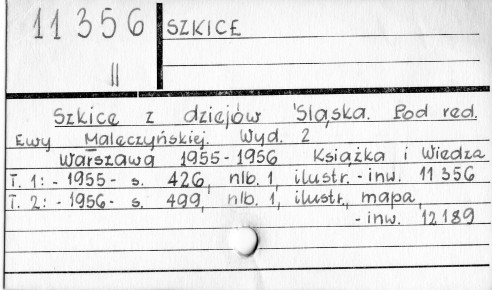 11 356
SZKICE
II
Szkice z dziejów Śląska. Pod red.
Ewy Maleczyńskiej. Wyd. 2
Warszawa 1955-1956 Książka i Wiedza
T. 1: - 1955- s. 426, nlb. 1, ilustr. - inw. 11 356
T. 2: - 1956- s. 499, nlb. 1, ilustr., mapa,
- inw. 12 189